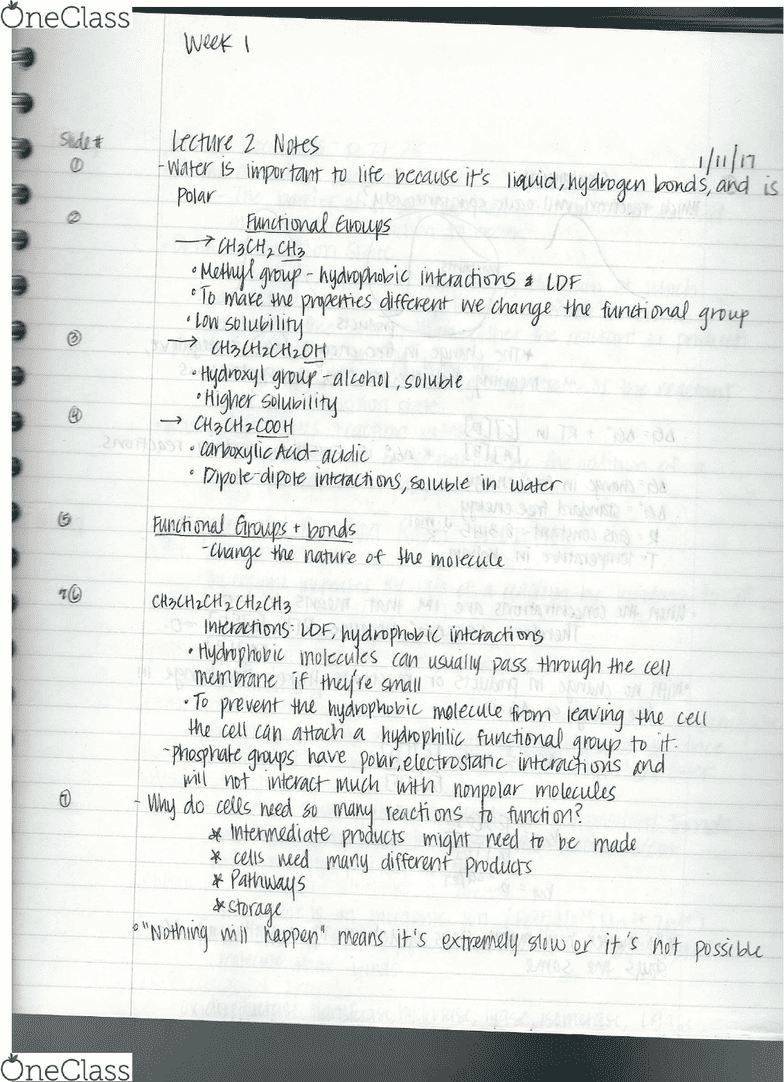 OneClass
Week 1
Slide #
Lecture 2 Notes
1/11/17
① -Water is important to life because it's liquid, hydrogen bonds, and is
Polar
② Functional Groups
→ CH3CH2CH3
• Methyl group - hydrophobic interactions & LDF
• To make the properties different we change the functional group
• Low solubility
③ → CH3CH2CH2OH
• Hydroxyl group - alcohol, soluble
• Higher solubility
④ → CH3CH2COOH
• Carboxylic Acid - acidic
• Dipole-dipole interactions, soluble in water
⑤ Functional Groups + bonds
-change the nature of the molecule
⑥ CH3CH2CH2CH2CH3
Interactions: LDF, hydrophobic interactions
• Hydrophobic molecules can usually pass through the cell
membrane if they're small
• To prevent the hydrophobic molecule from leaving the cell
the cell can attach a hydrophilic functional group to it.
-Phosphate groups have polar, electrostatic interactions and
will not interact much with nonpolar molecules
⑦ - Why do cells need so many reactions to function?
* Intermediate products might need to be made
* cells need many different products
* Pathways
* storage
• "Nothing will happen" means it's extremely slow or it's not possible
OneClass